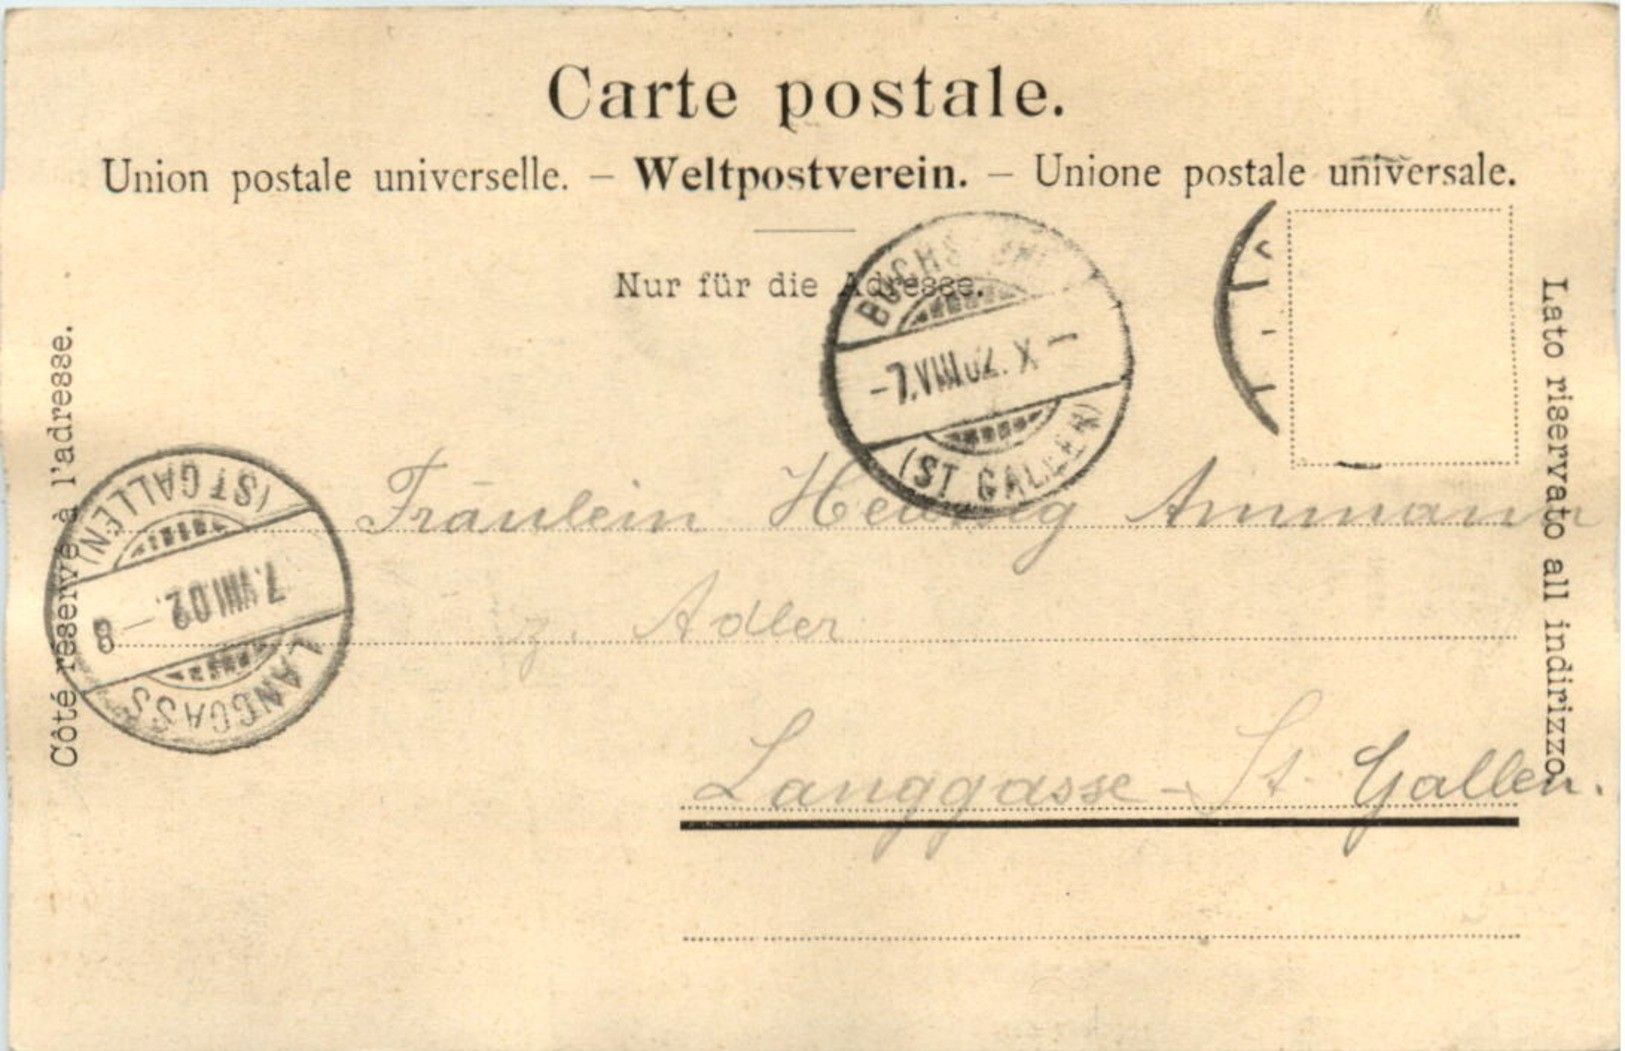 Carte postale.
Union postale universelle. – Weltpostverein. – Unione postale universale.
Nur für die Adresse.
BUCHS
-7.VIII.02.X-
(ST GALLEN)
Côté réservé à l'adresse.
Lato riservato all indirizzo.
(ST GALLEN)
7.VIII.02. – 8
LANGGASS
Fräulein Hedwig Ammann
z. Adler
Langgasse - St. Gallen.